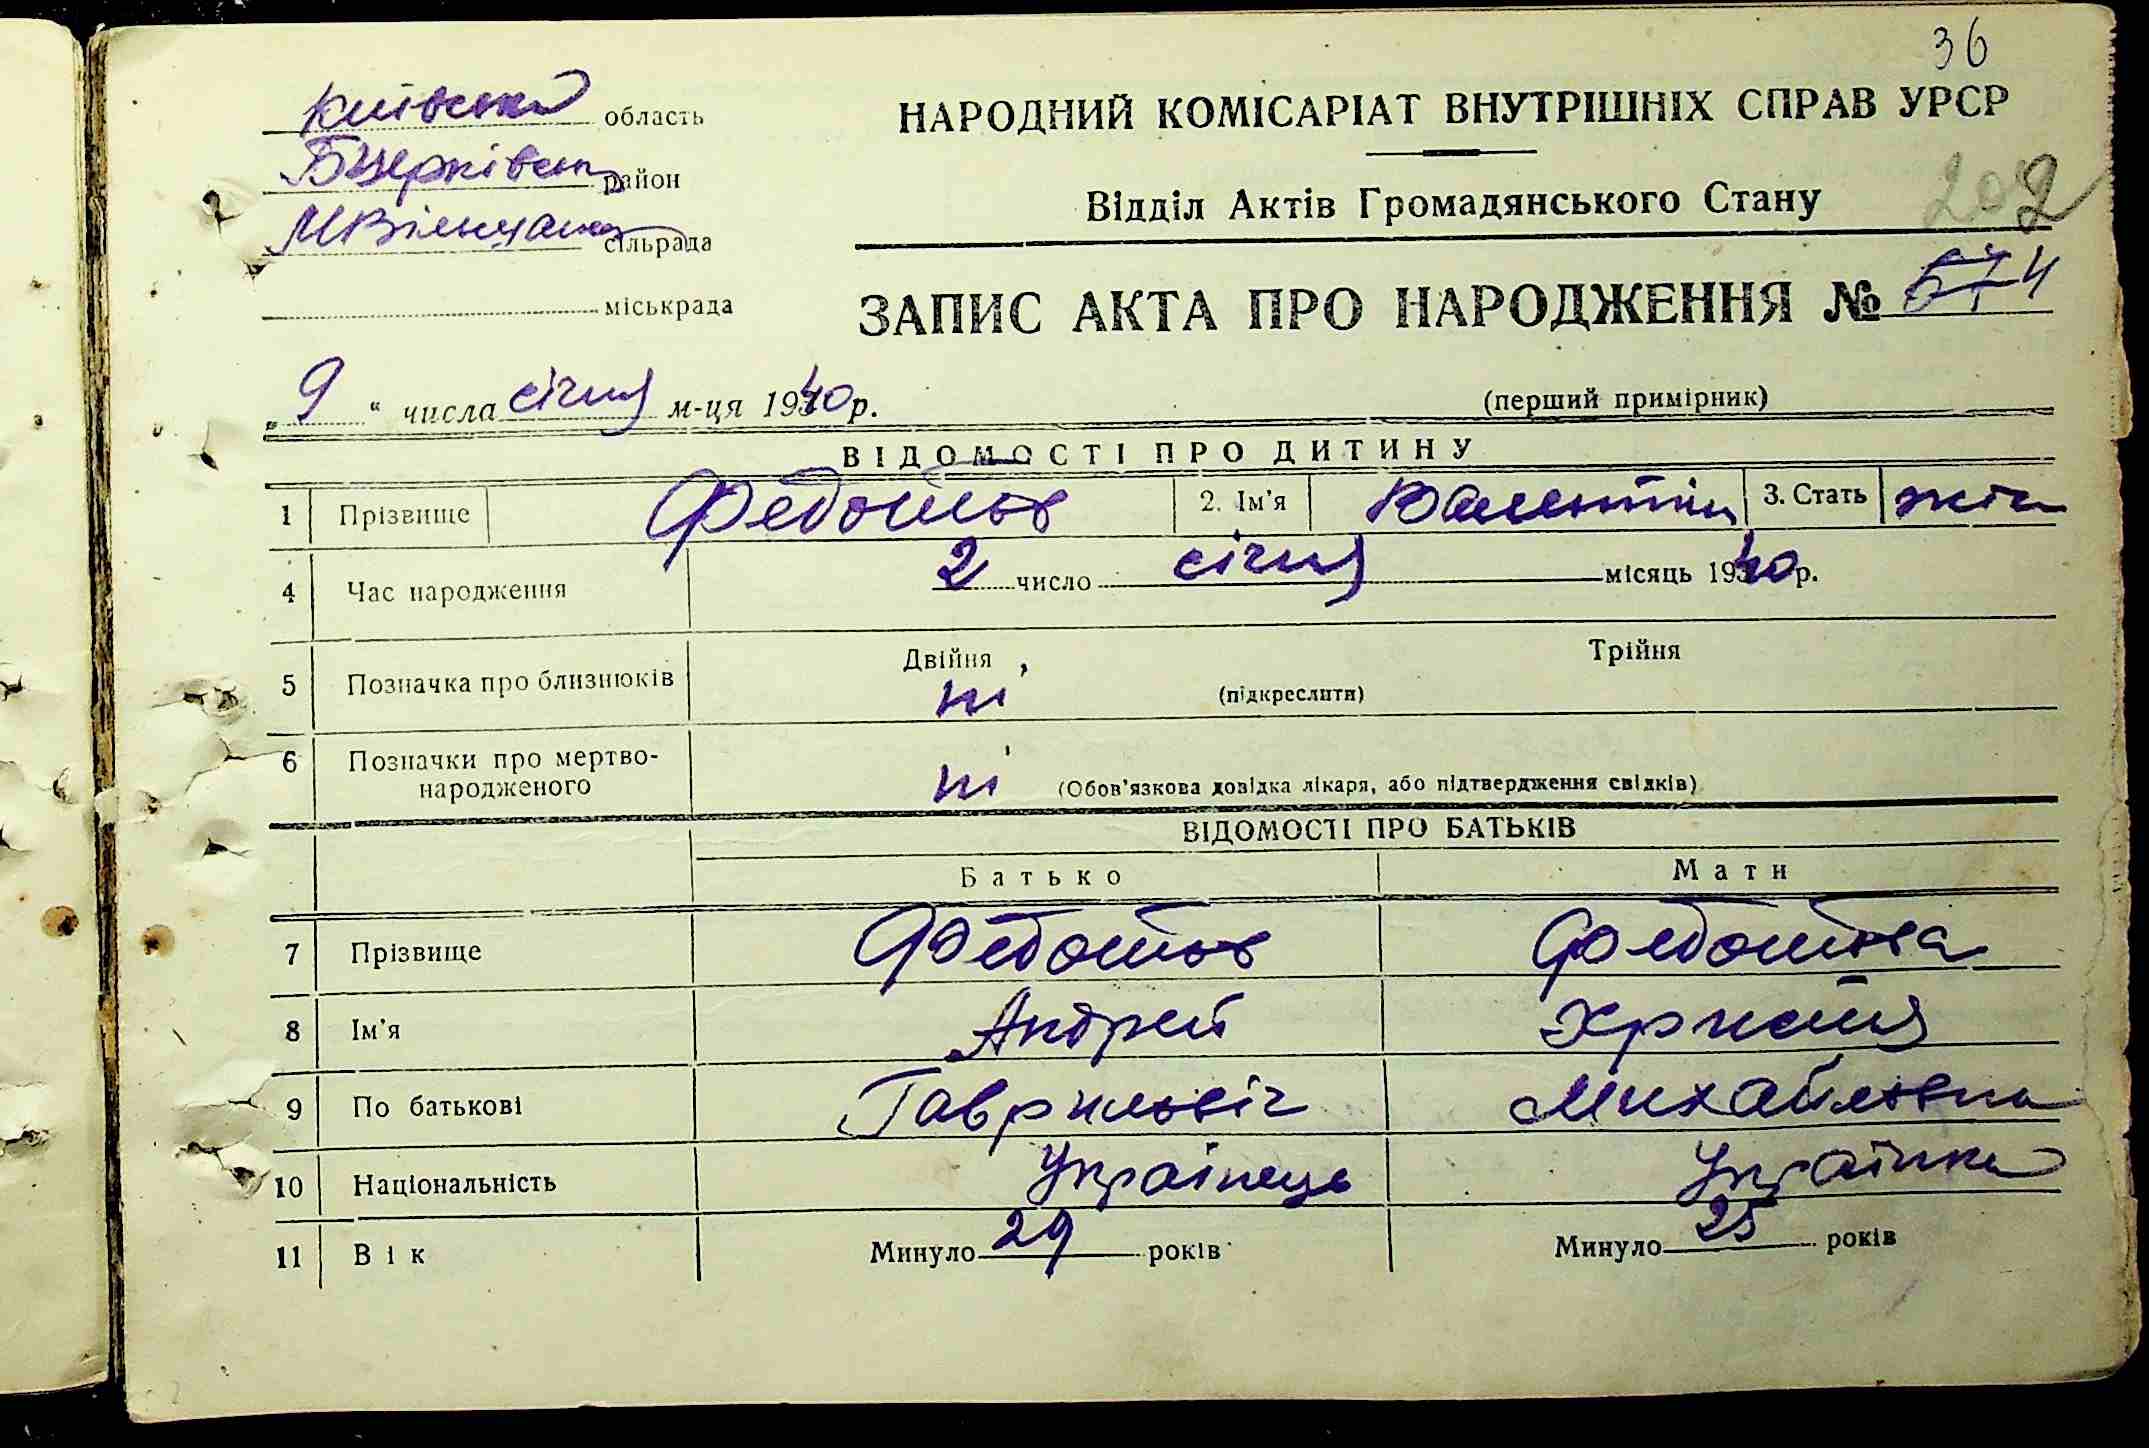 36
Київська область
НАРОДНИЙ КОМІСАРІАТ ВНУТРІШНІХ СПРАВ УРСР
Бцерківськ район
Відділ Актів Громадянського Стану
202
МВільшанс сільрада
міськрада
ЗАПИС АКТА ПРО НАРОДЖЕННЯ № 4
„ 9 “ числа січня м-ця 1940 р.
(перший примірник)
ВІДОМОСТІ ПРО ДИТИНУ
1 Прізвище Федотов 2. Ім'я Валентин 3. Стать
4 Час народження 2 число січня місяць 1940 р.
5 Позначка про близнюків Двійня Трійня
ні (підкреслити)
6 Позначки про мертво-
народженого ні (Обов'язкова довідка лікаря, або підтвердження свідків)
ВІДОМОСТІ ПРО БАТЬКІВ
Батько Мати
7 Прізвище Федотов Федотова
8 Ім'я Андрей Христя
9 По батькові Гаврильвіч Михайловна
10 Національність Українець Українка
11 Вік Минуло 29 років Минуло 25 років